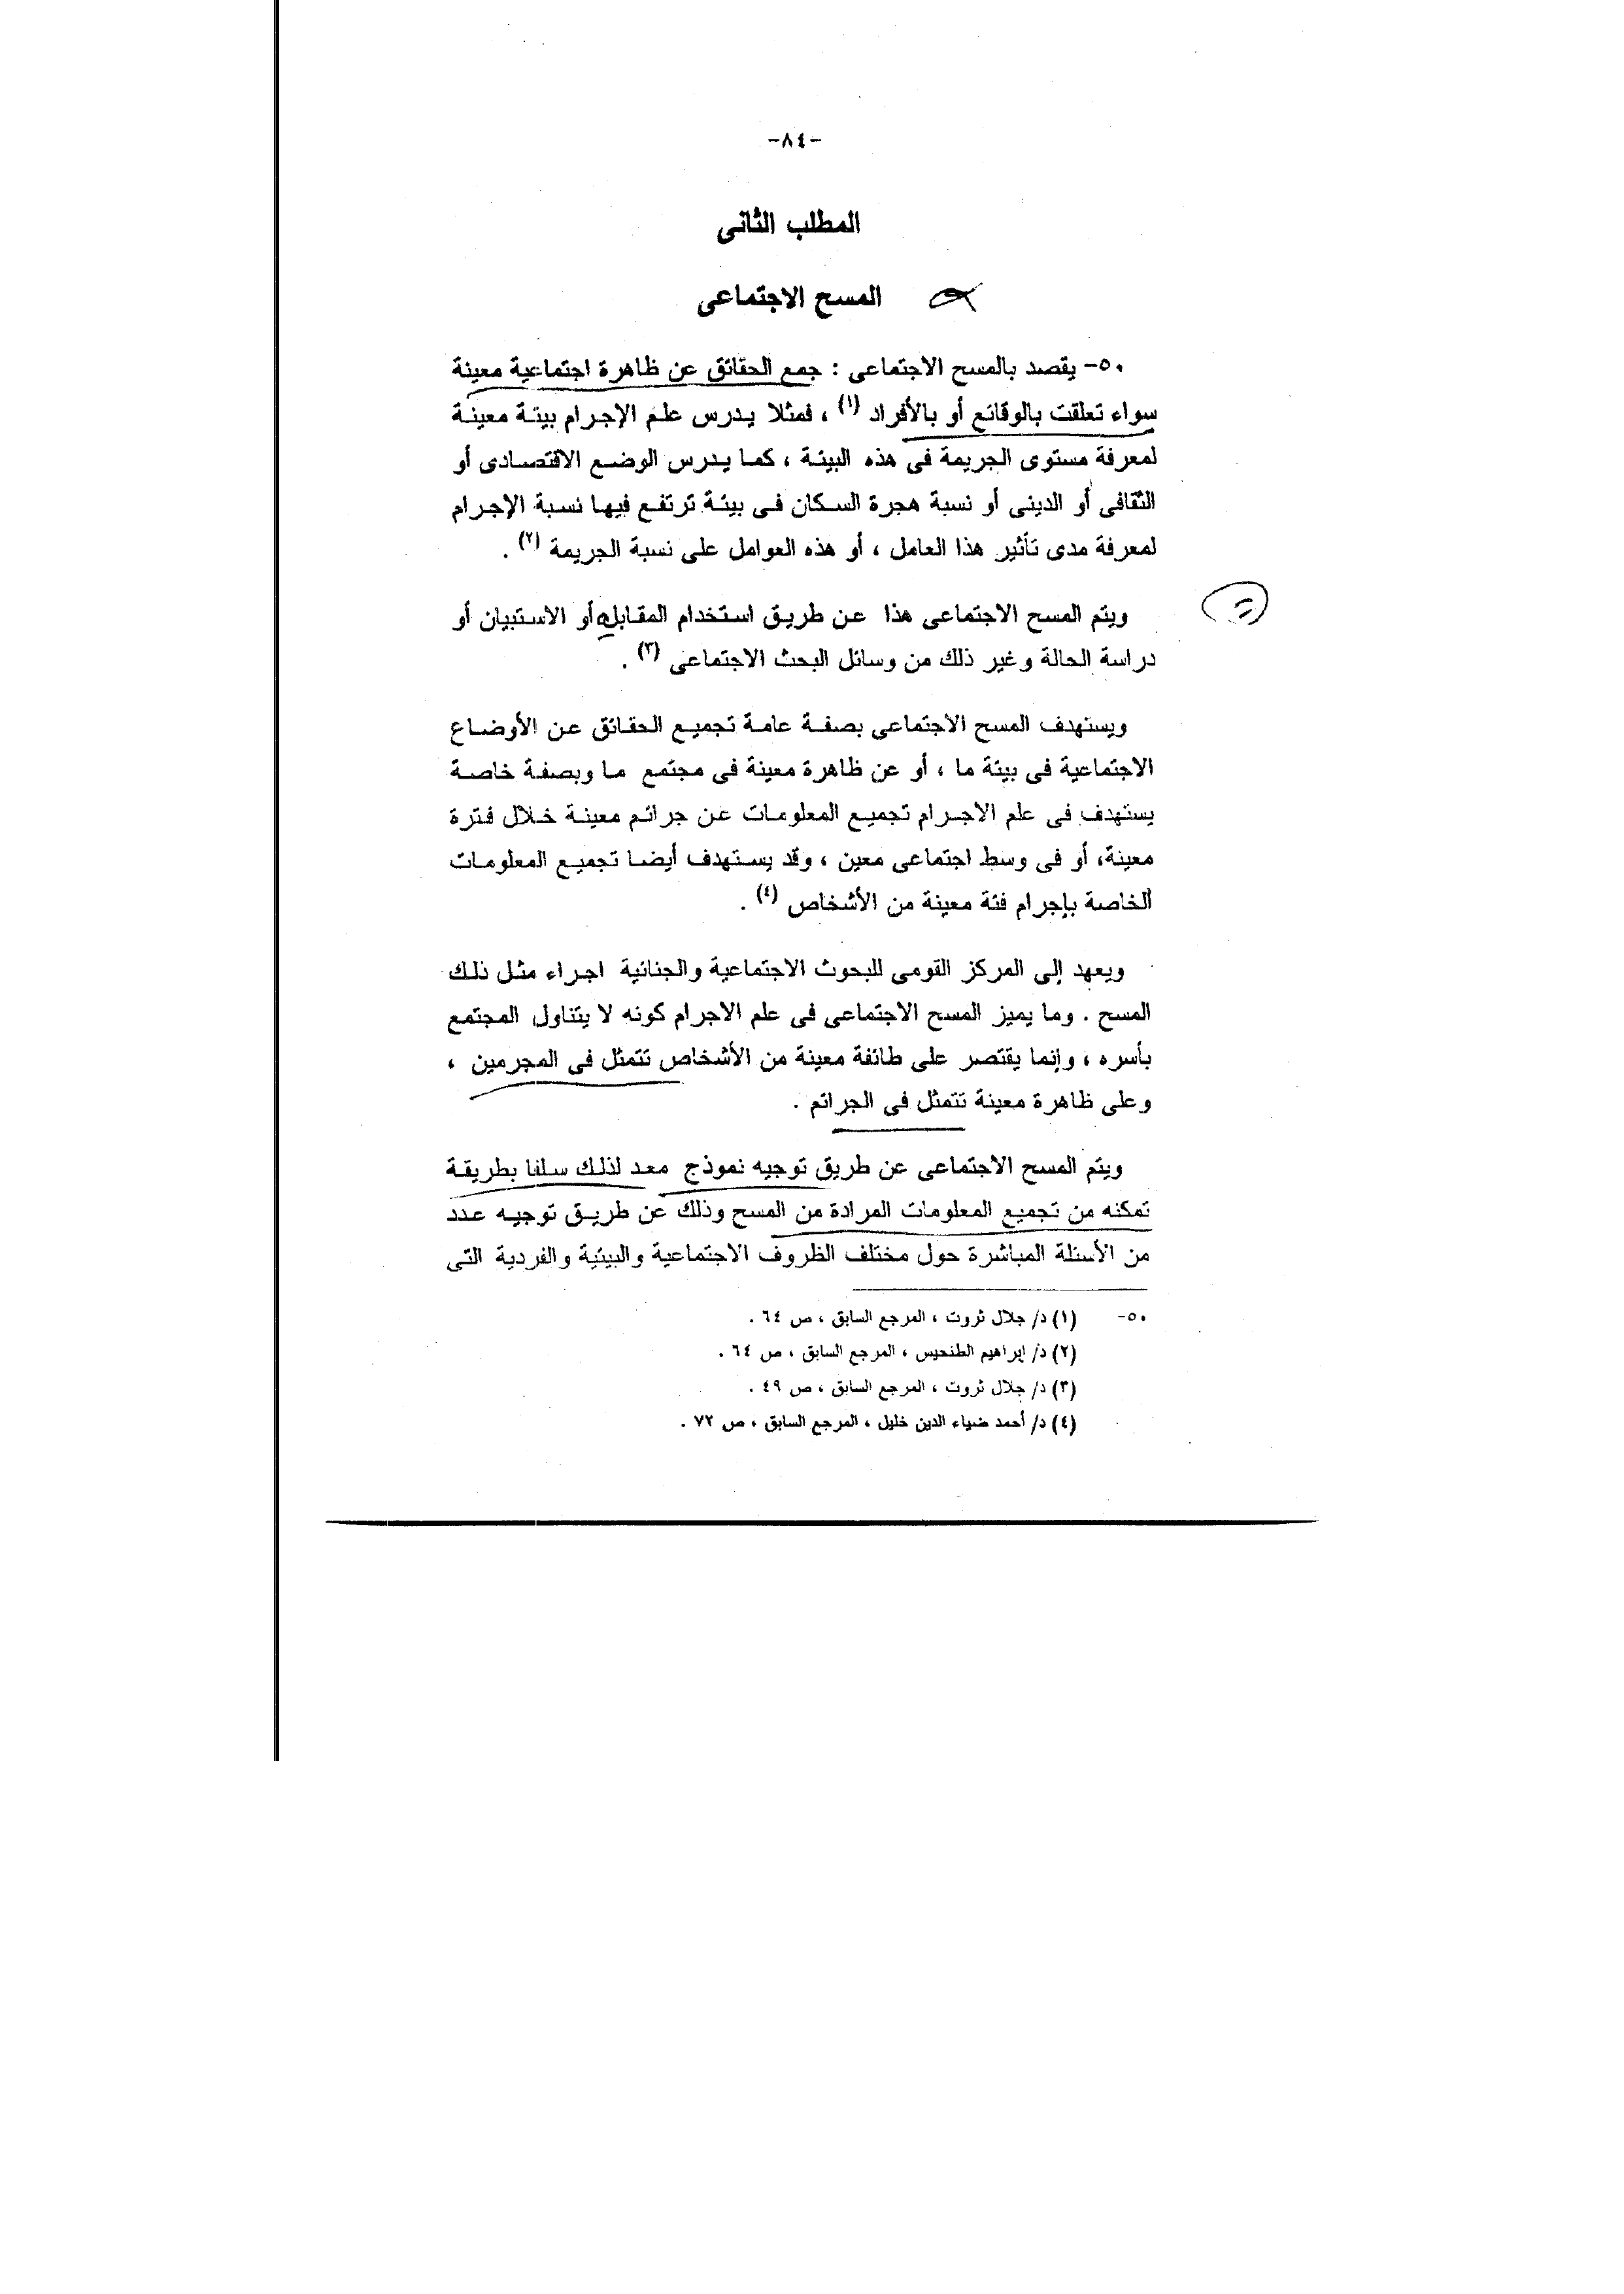 -٨٤-
المطلب الثانى
المسح الاجتماعى
٥٠- يقصد بالمسح الاجتماعى : جمع الحقائق عن ظاهرة اجتماعية معينة
سواء تعلقت بالوقائع أو بالأفراد (١) ، فمثلا يدرس علم الإجرام بيئة معينة
لمعرفة مستوى الجريمة فى هذه البيئة ، كما يدرس الوضع الاقتصادى أو
الثقافى أو الدينى أو نسبة هجرة السكان فى بيئة ترتفع فيها نسبة الإجرام
لمعرفة مدى تأثير هذا العامل ، أو هذه العوامل على نسبة الجريمة (٢) .
ويتم المسح الاجتماعى هذا عن طريق استخدام المقابلة أو الاستبيان أو
دراسة الحالة وغير ذلك من وسائل البحث الاجتماعى (٣) .
ويستهدف المسح الاجتماعى بصفة عامة تجميع الحقائق عن الأوضاع
الاجتماعية فى بيئة ما ، أو عن ظاهرة معينة فى مجتمع ما وبصفة خاصة
يستهدف فى علم الاجرام تجميع المعلومات عن جرائم معينة خلال فترة
معينة، أو فى وسط اجتماعى معين ، وقد يستهدف أيضا تجميع المعلومات
الخاصة بإجرام فئة معينة من الأشخاص (٤) .
ويعهد إلى المركز القومى للبحوث الاجتماعية والجنائية اجراء مثل ذلك
المسح . وما يميز المسح الاجتماعى فى علم الاجرام كونه لا يتناول المجتمع
بأسره ، وإنما يقتصر على طائفة معينة من الأشخاص تتمثل فى المجرمين ،
وعلى ظاهرة معينة تتمثل فى الجرائم .
ويتم المسح الاجتماعى عن طريق توجيه نموذج معد لذلك سلفا بطريقة
تمكنه من تجميع المعلومات المرادة من المسح وذلك عن طريق توجيه عدد
من الأسئلة المباشرة حول مختلف الظروف الاجتماعية والبيئية والفردية التى
٥٠- (١) د/ جلال ثروت ، المرجع السابق ، ص ٦٤ .
(٢) د/ إبراهيم الطنحيس ، المرجع السابق ، ص ٦٤ .
(٣) د/ جلال ثروت ، المرجع السابق ، ص ٤٩ .
(٤) د/ أحمد ضياء الدين خليل ، المرجع السابق ، ص ٧٢ .